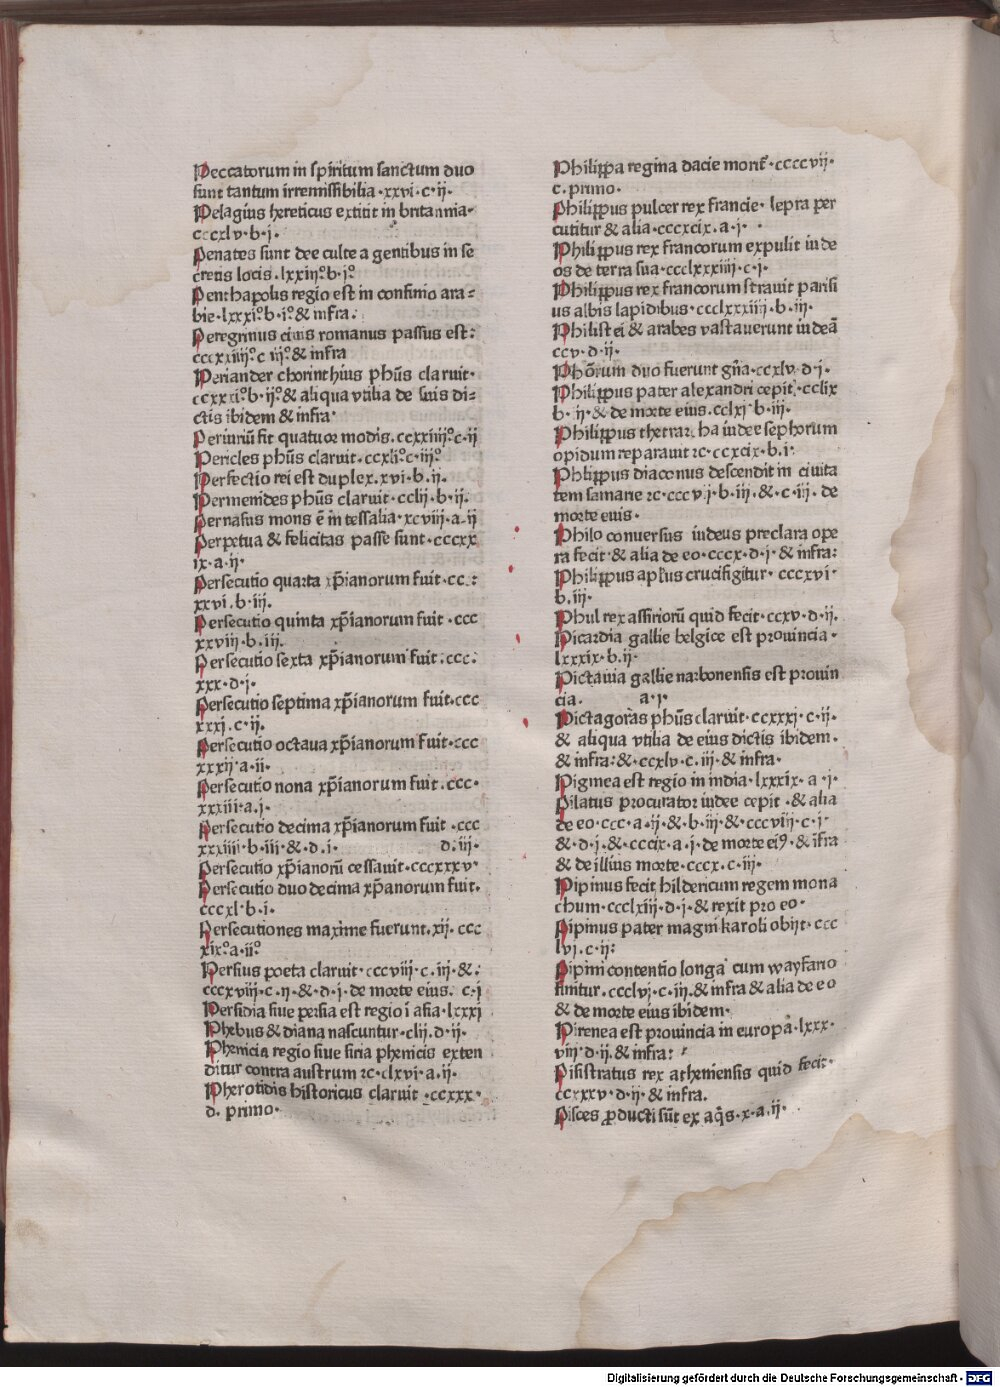 Peccatorum in spiritum sanctum duo
sunt tantum irremissibilia·xxvi·c·ii.
Pelagius hereticus extitit in britannia·
cccxlv·b·i·
Penates sunt dee culte a gentibus in se
cretis locis.lxxiiij°b·i°
Penthapolis regio est in confinio ara=
bie·lxxxi°b·i°& infra:
Peregrinus ciuis romanus passus est:
cccxxiiij°c iij°& infra
Periander chorinthius ph̄us claruit·
ccxxxi°b·ij°& aliqua vtilia de suis di=
ctis ibidem & infra·
Periuriū fit quatuor modis.ccxxiiij°c·ij
Pericles ph̄us claruit·ccxli°c·iij°
Perfectio rei est duplex.xvi·b.ij.
Permenides ph̄us claruit·cclij·b·ij.
Pernasus mons ē in tessalia·xcviii·a·ij
Perpetua & felicitas passe sunt·cccxx
ix·a·ij·
Persecutio quarta xp̄ianorum fuit·ccc:
xxvi.b·iij.
Persecutio quinta xp̄ianorum fuit·ccc
xxviij·b.iij.
Persecutio sexta xp̄ianorum fuit.ccc:
xxx·d·i·
Persecutio septima xp̄ianorum fuit.ccc
xxxi.c·ij.
Persecutio octaua xp̄ianorum fuit·ccc
xxxij·a·ii·
Persecutio nona xp̄ianorum fuit.ccc·
xxxiii·a.j·
Persecutio decima xp̄ianorum fuit·ccc
xxxiiij·b·iij·&·d.i· d.iij·
Persecutio xp̄ianorū cessauit·cccxxxv·
Persecutio duo decima xp̄anorum fuit.
cccxl·b·i·
Persecutiones maxime fuerunt.xij.ccc
xix°a·ij°
Persius poeta claruit·cccviij·c.iij·&:
cccxviij·c·ij·&·d·j·de morte eius. c·j
Persidia siue persia est regio ī asia·lxxxj
Phebus & diana nascuntur·clij.d·ij·
Phenicia regio siue siria phenicis exten
ditur contra austrum ⁊c·clxvi·a·ij·
Pherotidis historicus claruit·ccxxx·
d· primo·
Philippa regina dacie morit̄·ccccvij·
c·primo·
Philippus pulcer rex francie·lepra per
cutitur & alia·cccxcix.a·j·
Philippus rex francorum expulit iude
os de terra sua·ccclxxxiiij·c·j·
Philippus rex francorum strauit parisi
us albis lapidibus·ccclxxxiiij·b·iij·
Philistei & arabes vastauerunt iudeā
ccv·d·ij·
Ph̄orum duo fuerunt gn̄a·ccxlv·d·j·
Philippus pater alexandri cepit·cclix
b·ij·& de morte eius.cclxj·b·iij·
Philippus thetrarcha iudee sephorum
opidum reparauit ⁊c·ccxcix·b·i·
Philippus diaconus descendit in ciuita
tem samarie ⁊c·cccvj·b·iij·&·c·iij·de
morte eius·
Philo conuersus iudeus preclara ope
ra fecit·& alia de eo·cccx·d·j·& infra:
Philippus ap̄lus crucifigitur·cccxvi·
b.iij·
Phul rex assiriorū quid fecit·ccxv·d·ij.
Picardia gallie belgice est prouincia·
lxxxix·b.ij·
Pictauia gallie narbonensis est prouin
cia· a·j·
Pictagoras ph̄us claruit·ccxxxj·c·ij·
& aliqua vtilia de eius dictis ibidem·
& infra:&·ccxlv·c.iij·& infra·
Pigmea est regio in india·lxxxix·a·j·
Pilatus procurator iudee cepit·& alia
de eo·ccc·a·ij·&·b·iij·&·cccviij·c·j·
&·d·j·&·cccix·a·j·de morte ei⁹·& īfra
& de illius morte·cccx.c·iij·
Pipinus fecit hildericum regem mona
chum·ccclxiij·d·j·& rexit pro eo·
Pipinus pater magni karoli obijt·ccc
lvj.c·ij:
Pipini contentio longa cum wayfario
finitur.ccclvj·c·iij.& infra & alia de eo
& de morte eius ibidem·
Pirenea est prouincia in europa·lxxx·
viij·d·ij.& infra:
Pisistratus rex atheniensis quid fecit·
ccxxxv·d·ij·& infra.
Pisces ꝓducti sūt ex aq̄s·x·a·ij·
Digitalisierung gefördert durch die Deutsche Forschungsgemeinschaft - DFG